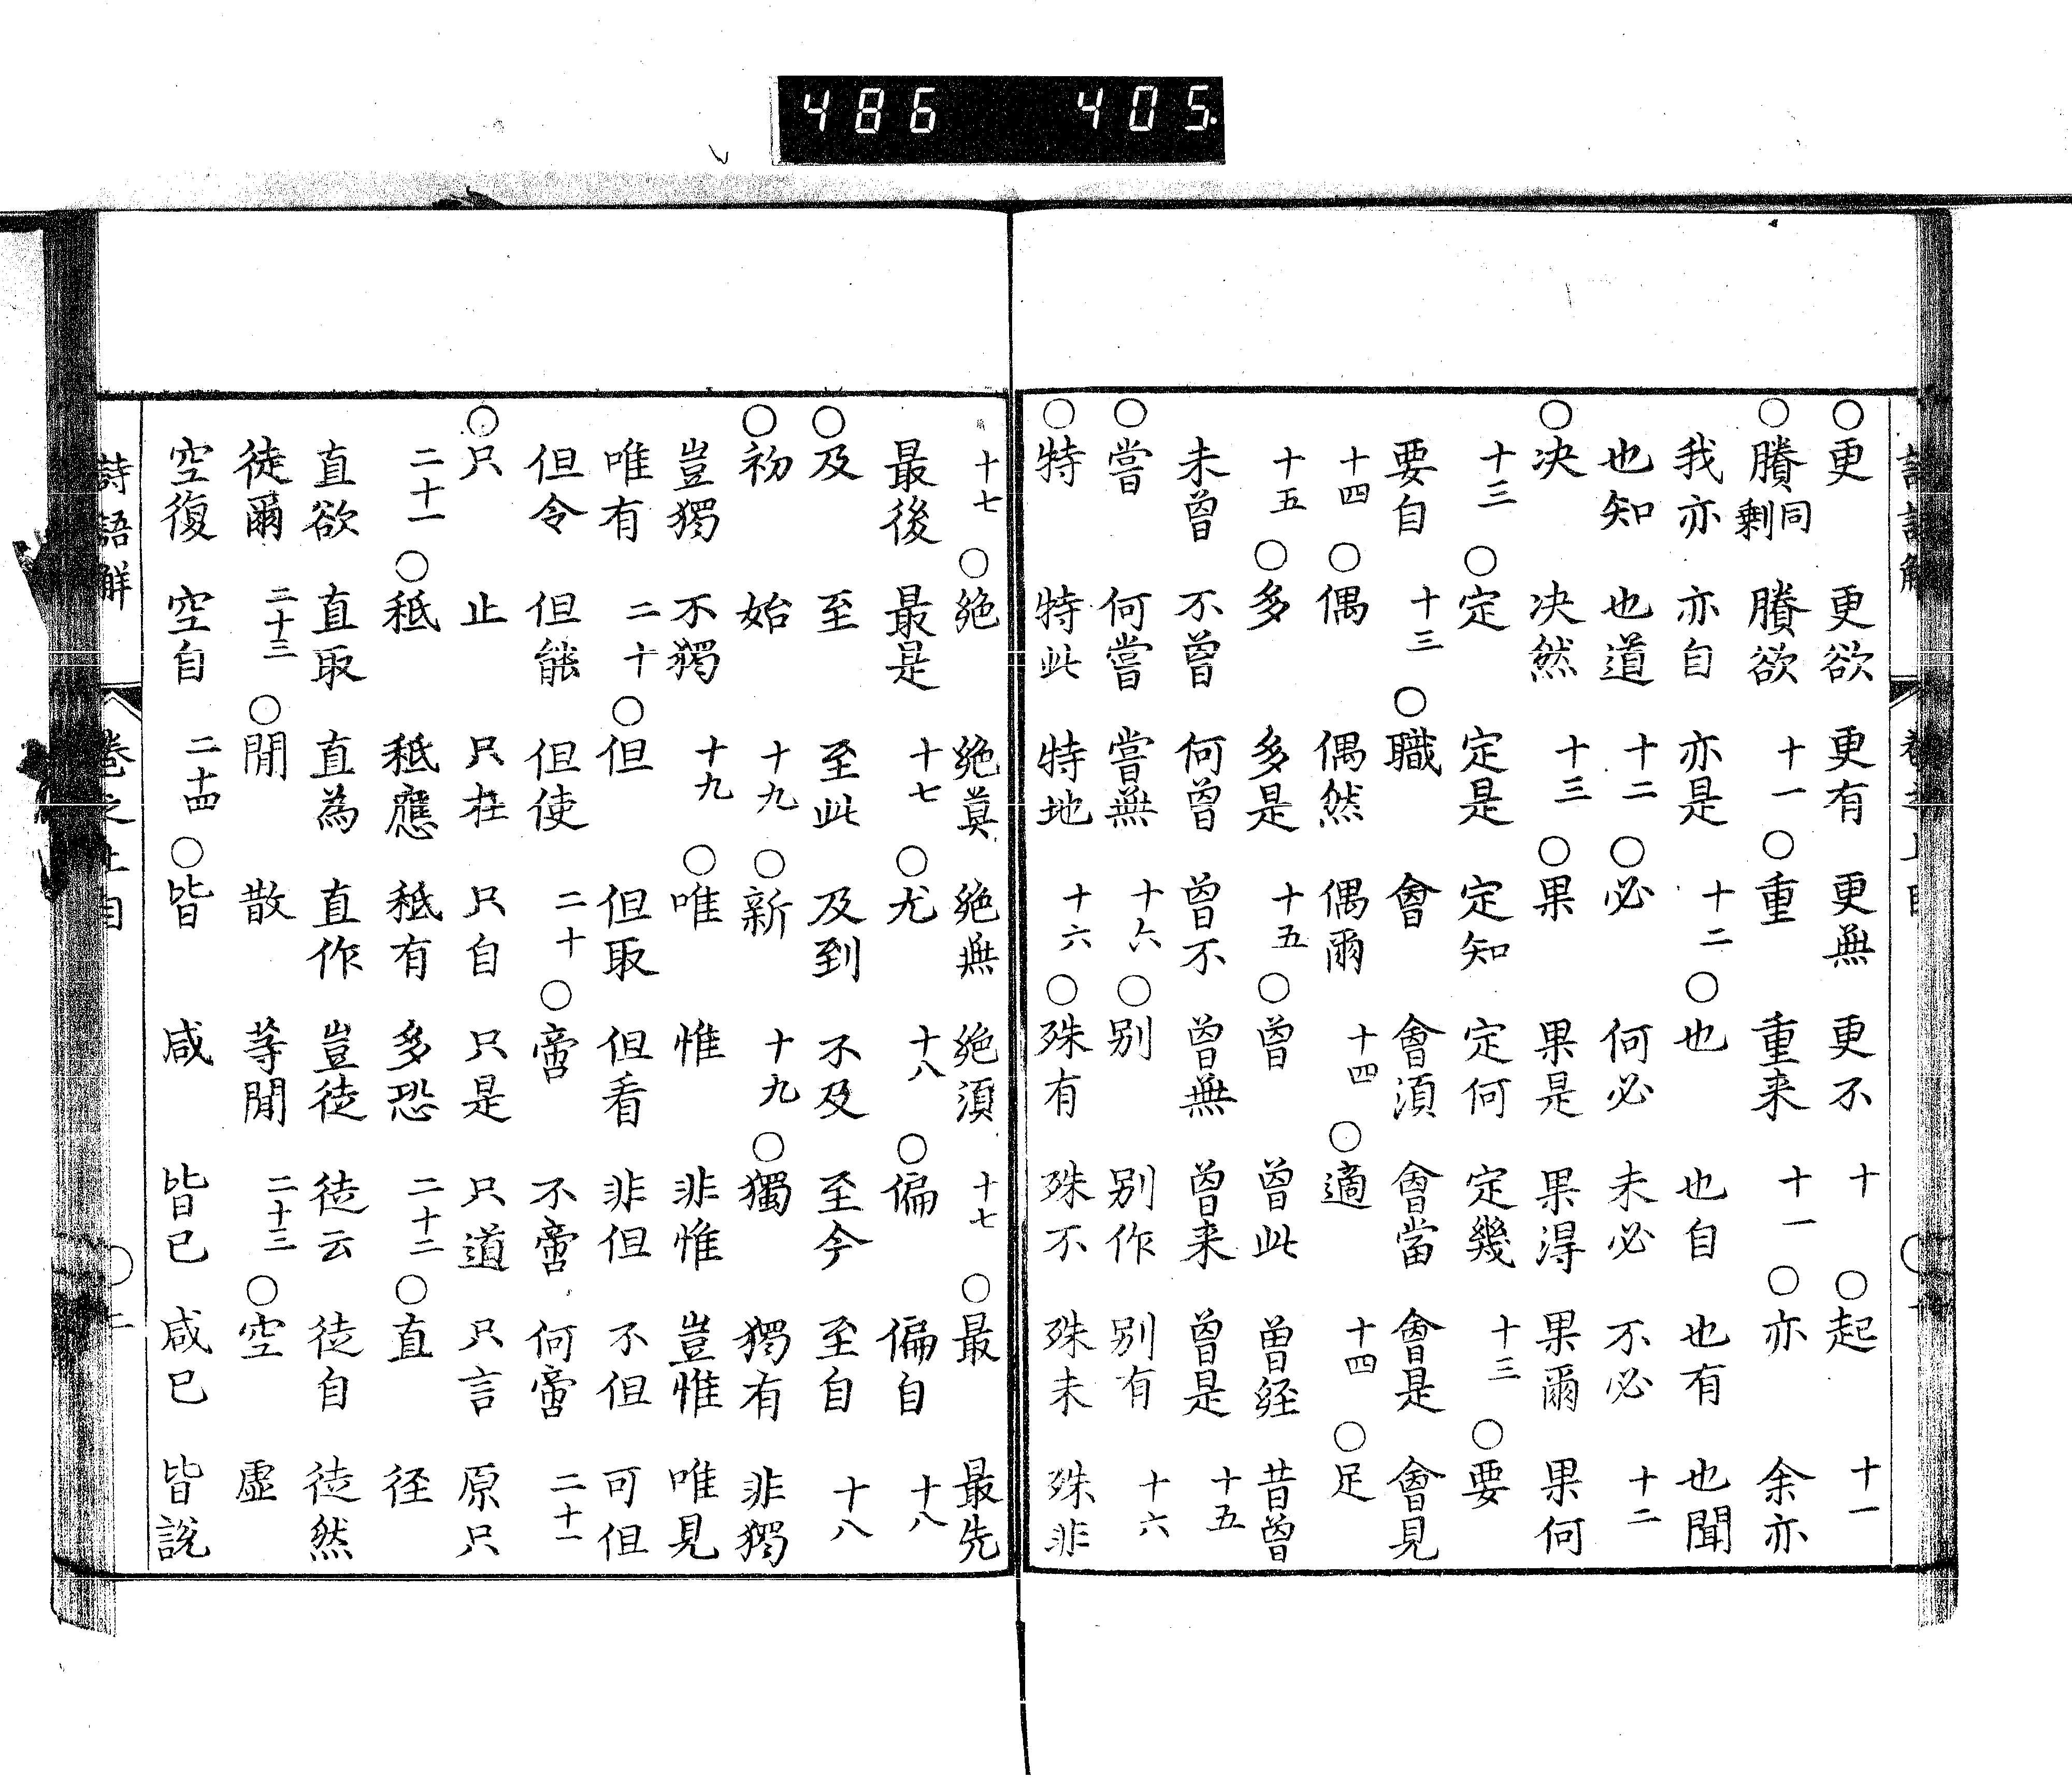 486 405.
○更 更欲 更有 更無 更不 十 ○起 十一
○賸剰同 賸欲 十一 ○重 重来 十一 ○亦 余亦
我亦 亦自 亦是 十二 ○也 也自 也有 也聞
也知 也道 十二 ○必 何必 未必 不必 十二
○决 决然 十三 ○果 果是 果得 果爾 果何
十三 ○定 定是 定知 定何 定幾 十三 ○要
要自 十三 ○職 會 會須 會當 會是 會見
十四 ○偶 偶然 偶爾 十四 ○適 十四 ○足
十五 ○多 多是 十五 ○曾 曾此 曽経 昔曾
未曾 不曾 何曾 曾不 曾無 曾来 曾是 十五
○嘗 何嘗 嘗無 十六 ○別 別作 別有 十六
○特 特此 特地 十六 ○殊有 殊不 殊未 殊非
十七 ○絶 絶莫 絶無 絶須 十七 ○最 最先
最後 最是 十七 ○尤 十八 ○偏 偏自 十八
○及 至 至此 及到 不及 至今 至自 十八
○初 始 十九 ○新 十九 ○獨 獨有 非獨
豈獨 不獨 十九 ○唯 惟 非惟 豈惟 唯見
唯有 二十 ○但 但取 但看 非但 不但 可但
但令 但能 但使 二十 ○啻 不啻 何啻 二十一
○只 止 只在 只自 只是 只道 只言 原只
二十一 ○秪 秪應 秪有 多恐 二十二 ○直 径
直欲 直取 直為 直作 豈徒 徒云 徒自 徒然
徒爾 二十三 ○閒 散 等閒 二十三 ○空 虚
空復 空自 二十四 ○皆 咸 皆已 咸已 皆説
詩語解 卷之上目 ○二